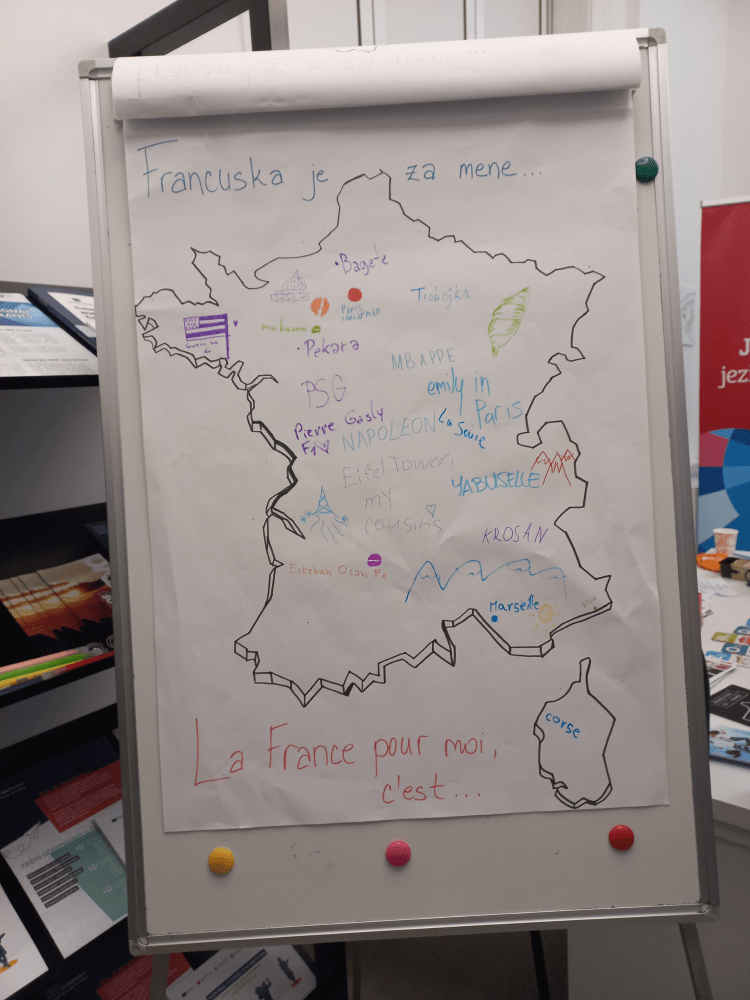 Francuska je za mene...
Bagete
Trobojka
Paris
makaron
Gwenn ha
du
Pekara
MBAPPE
PSG
emily in
Paris
Pierre Gasly
F1
NAPOLEON
La Seine
Eifel Tower,
my
cousins
YABUSELLE
KROSAN
Esteban Ocon F1
Marseille
Nice
corse
La France pour moi,
c'est...
J
jezi